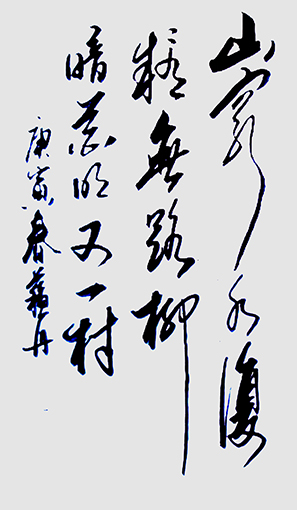 山窮水復
疑無路柳
暗花明又一村
庚寅春